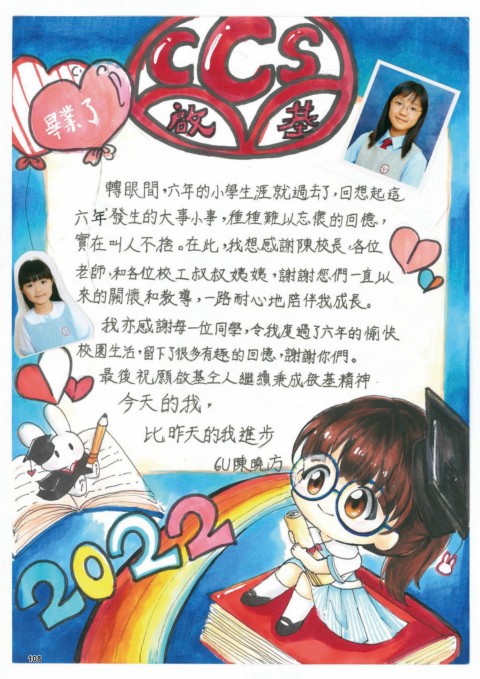 CCS
啟基
畢業了
轉眼間，六年的小學生涯就過去了，回想起這
六年發生的大事小事，種種難以忘懷的回憶，
實在叫人不捨。在此，我想感謝陳校長、各位
老師，和各位校工叔叔姨姨，謝謝您們一直以
來的關懷和教導，一路耐心地陪伴我成長。
我亦感謝每一位同學，令我度過了六年的愉快
校園生活，留下了很多有趣的回憶，謝謝你們。
最後祝願啟基仝人繼續秉成啟基精神
今天的我，
比昨天的我進步
6U陳曉方
2022
108